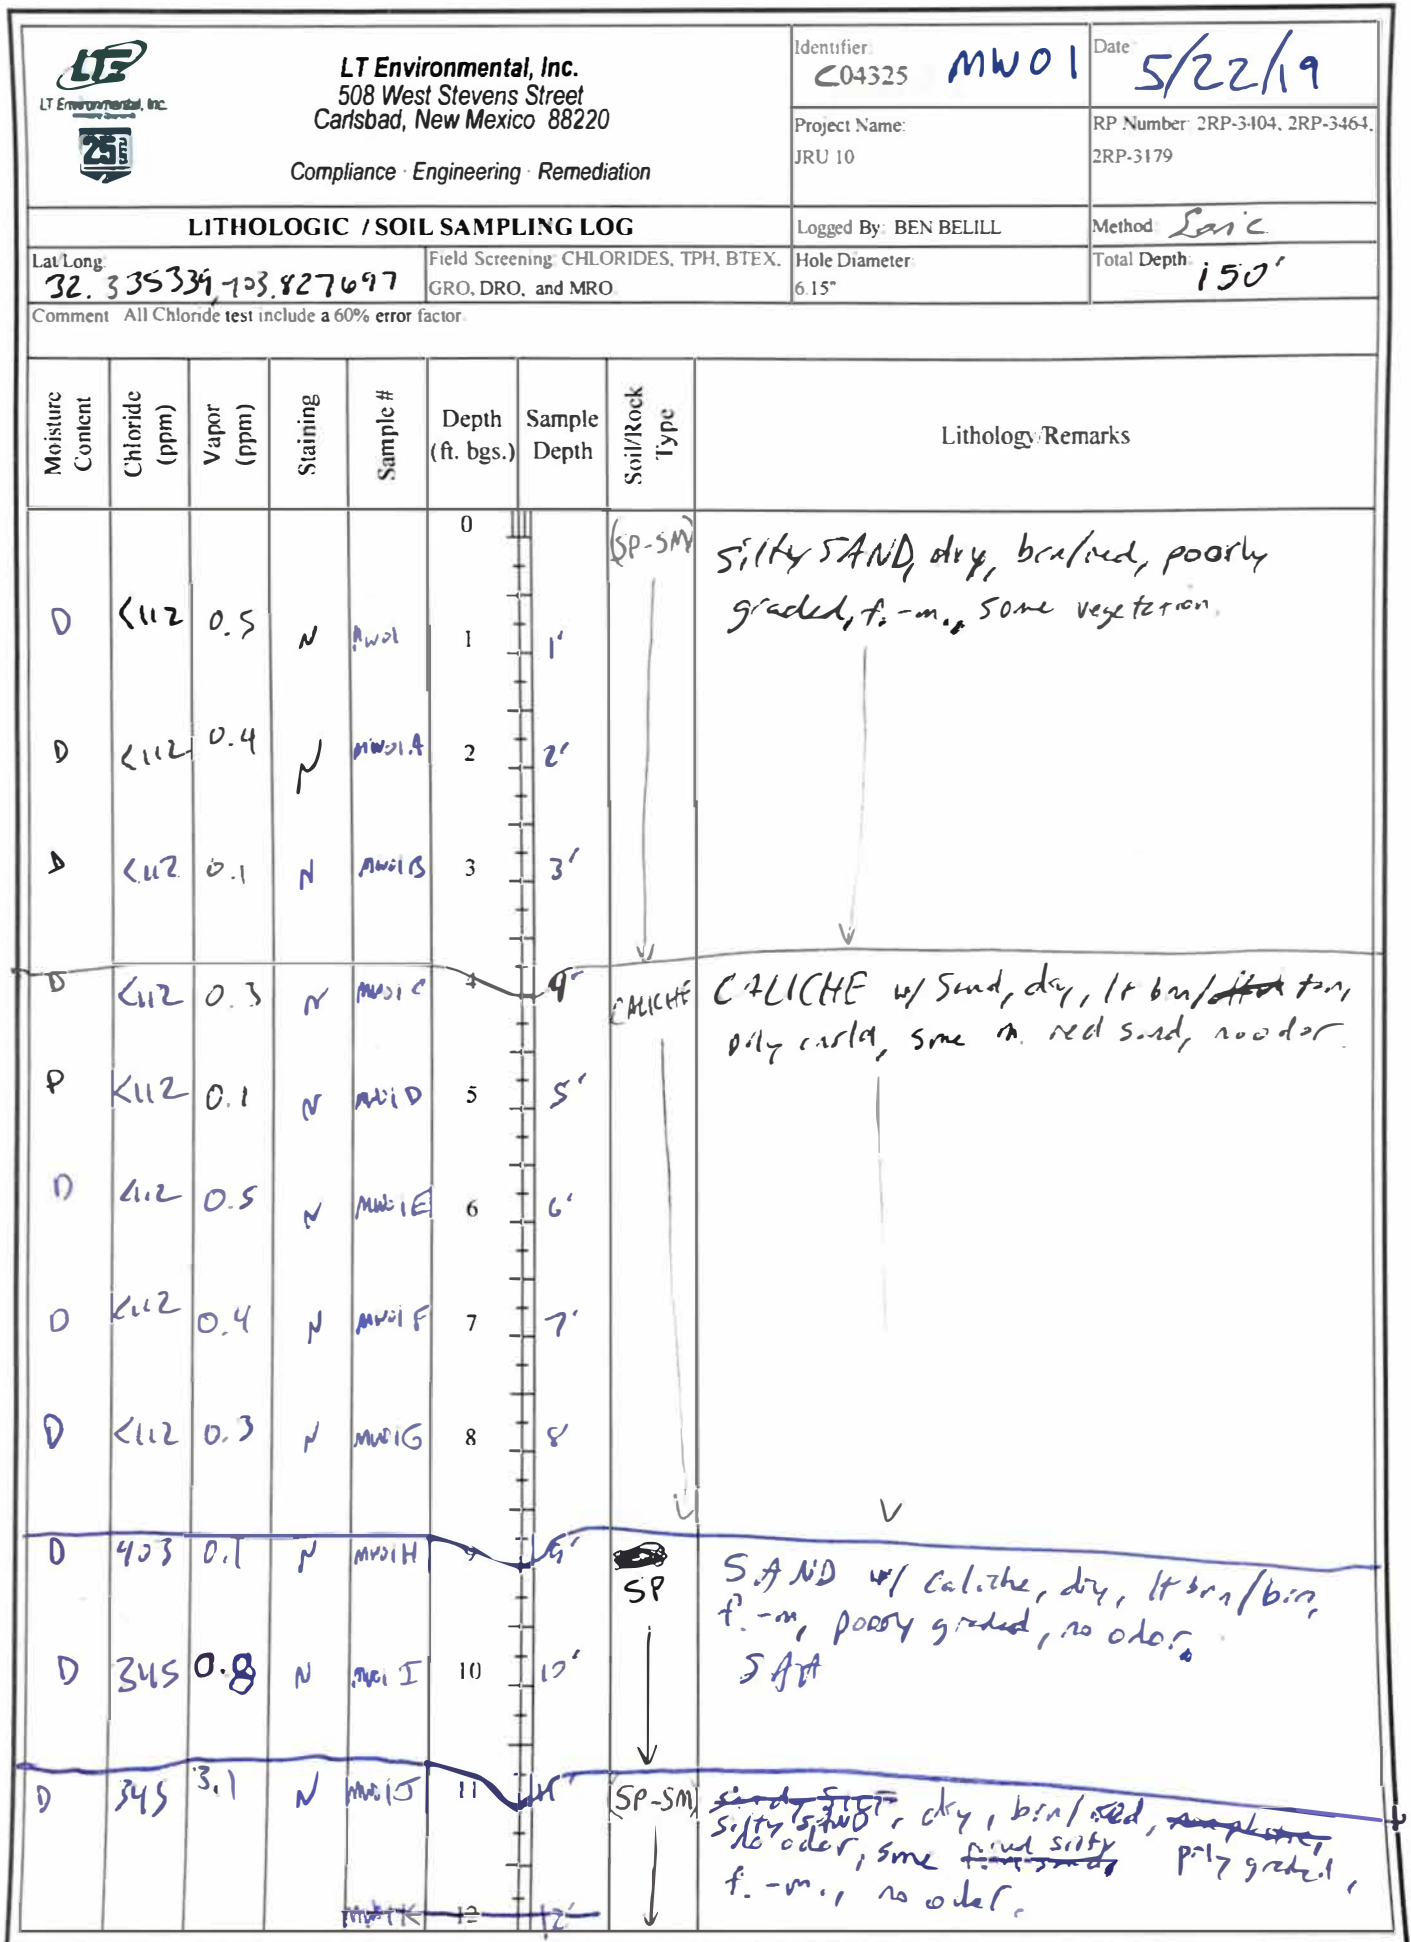 LTE
LT Environmental, Inc.
25
LT Environmental, Inc.
508 West Stevens Street
Carlsbad, New Mexico 88220
Compliance · Engineering · Remediation
Identifier:
C04325 MW01
Date
5/22/19
Project Name:
JRU 10
RP Number: 2RP-3404, 2RP-3464,
2RP-3179
LITHOLOGIC / SOIL SAMPLING LOG
Logged By: BEN BELILL
Method: Sonic
Lat/Long:
32.335339,-103.827697
Field Screening: CHLORIDES, TPH, BTEX,
GRO, DRO, and MRO
Hole Diameter:
6.15"
Total Depth:
150'
Comment All Chloride test include a 60% error factor
Moisture Content
Chloride (ppm)
Vapor (ppm)
Staining
Sample #
Depth (ft. bgs.)
Sample Depth
Soil/Rock Type
Lithology/Remarks
0 (SP-SM) Silty SAND, dry, brn/red, poorly
graded, f.-m., some vegetation.
D <112 0.5 N MW01 1 1'
D <112 0.4 N MW01A 2 2'
D <112 0.1 N MW01B 3 3'
D <112 0.3 N MW01C 4 4' CALICHE CALICHE w/ Sand, dry, lt brn/ tan,
some m. red sand, no odor.
D <112 0.1 N MW01D 5 5'
D <112 0.5 N MW01E 6 6'
D <112 0.4 N MW01F 7 7'
D <112 0.3 N MW01G 8 8'
D 403 0.1 N MW01H 9 9' SP SAND w/ Caliche, dry, lt brn/brn,
f.-m, poorly graded, no odor.
D 345 0.8 N MW01I 10 10' SAA
D 345 3.1 N MW01J 11 11' (SP-SM) silty SAND, dry, brn/red,
no odor, some prly graded,
f.-m., no odor.
MW01K 12 12'